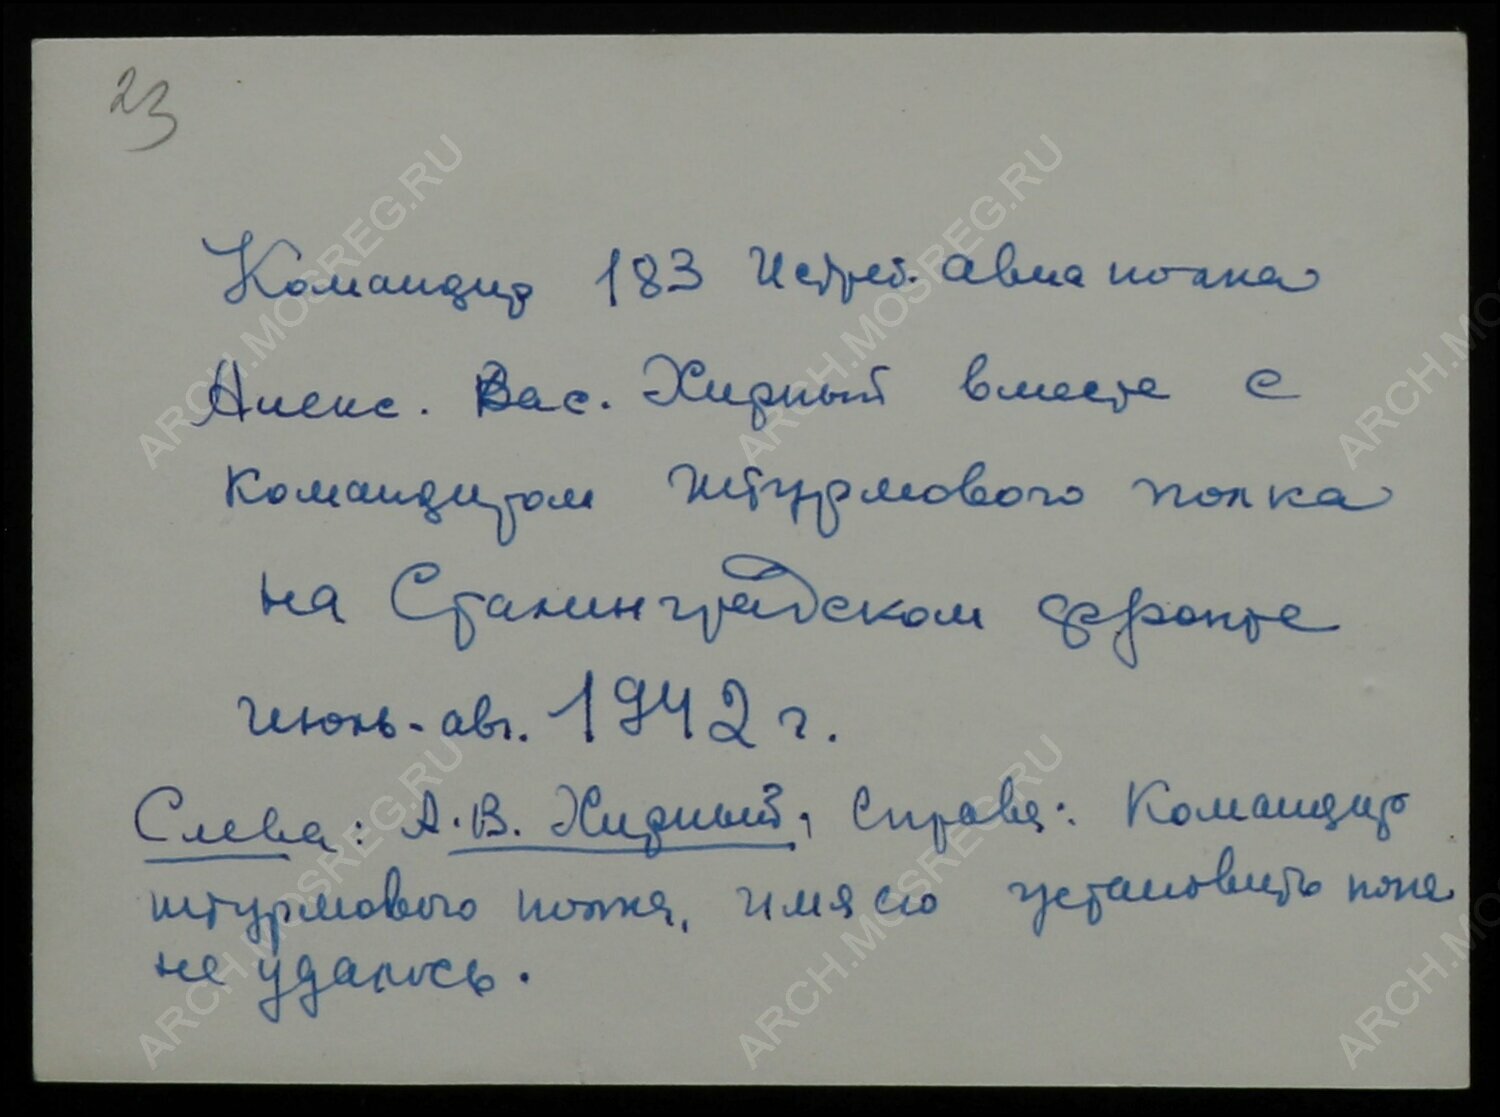 23
Командир 183 Истреб. авиаполка
Алекс. Вас. Хирный вместе с
командиром штурмового полка
на Сталинградском фронте
июнь-авг. 1942 г.
Слева: А.В. Хирный, справа: Командир
штурмового полка, имя его установить пока
не удалось.
ARCH.MOSREG.RU
ARCH.MOSREG.RU
ARCH.MOSREG.RU
ARCH.MOSREG.RU
ARCH.MOSREG.RU
ARCH.MOSREG.RU